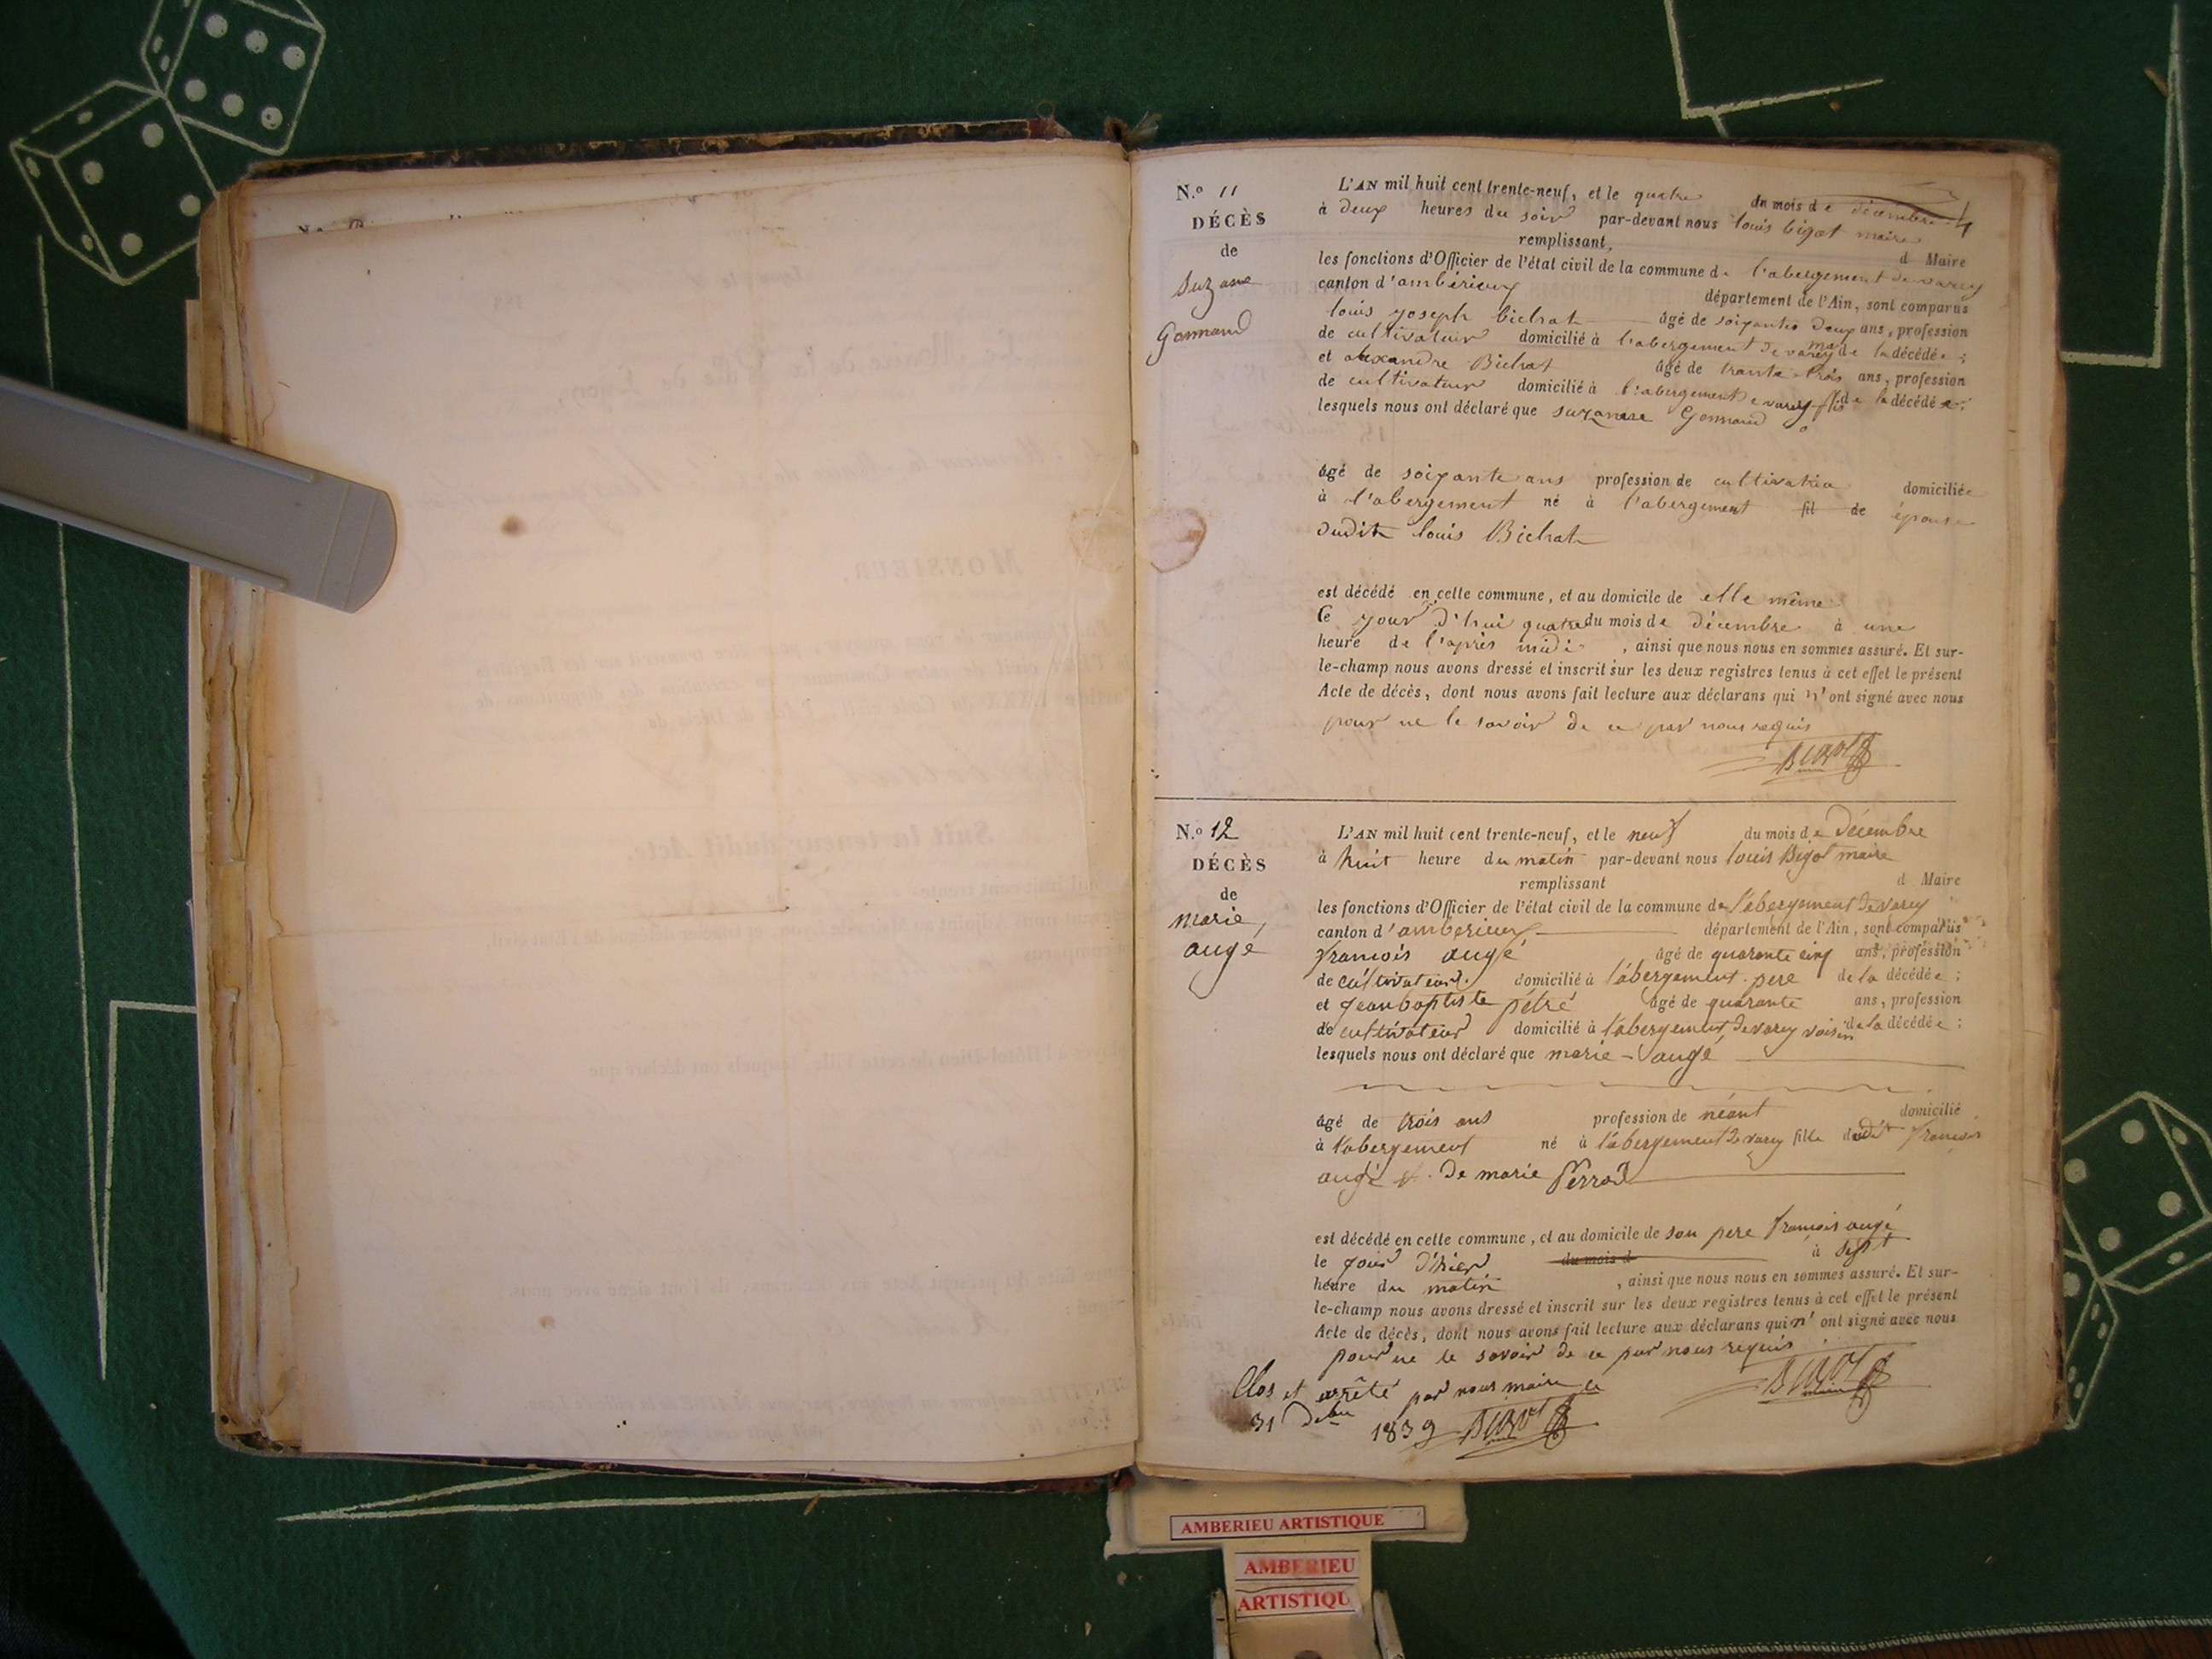 N.º 11
DÉCÈS
de
Suzane
Gonnand
L'AN mil huit cent trente-neuf, et le quatre du mois de décembre
à deux heures du soir par-devant nous louis bigot maire
remplissant d Maire
les fonctions d'Officier de l'état civil de la commune de l'abergement de varey
canton d'ambérieux département de l'Ain, sont comparus
louis joseph bichat âgé de soixante deux ans, profession
de cultivateur domicilié à l'abergement de varey mari de la décédée ;
et alexandre Bichat âgé de trante trois ans, profession
de cultivateur domicilié à l'abergement de varey fils de la décédée ;
lesquels nous ont déclaré que suzanne Gonnand
âgé de soixante ans profession de cultivatrice domiciliée
à l'abergement né à l'abergement fil de épouse
dudit louis Bichat
est décédé en cette commune, et au domicile de elle même
Ce jour d'hui quatre du mois de décembre à une
heure de l'après midi , ainsi que nous nous en sommes assuré. Et sur-
le-champ nous avons dressé et inscrit sur les deux registres tenus à cet effet le présent
Acte de décès, dont nous avons fait lecture aux déclarans qui n'ont signé avec nous
pour ne le savoir de ce par nous requis
Bigot
N.º 12
DÉCÈS
de
marie
augé
L'AN mil huit cent trente-neuf, et le neuf du mois de Décembre
à huit heure du matin par-devant nous louis Bigot maire
remplissant d Maire
les fonctions d'Officier de l'état civil de la commune de l'abergement de varey
canton d'amberieux département de l'Ain, sont comparus
francois augé âgé de quarante cinq ans, profession
de cultivateur domicilié à l'abergement pere de la décédée ;
et Jean baptiste pétré âgé de quarante ans, profession
de cultivateur domicilié à l'abergement de varey voisin de la décédée ;
lesquels nous ont déclaré que marie augé
âgé de trois ans profession de néant domicilié
à l'abergement né à l'abergement de varey fille dudit francois
augé et de marie Perrod
est décédé en cette commune, et au domicile de son pere francois augé
le jour d'hier du mois d à sept
heure du matin , ainsi que nous nous en sommes assuré. Et sur-
le-champ nous avons dressé et inscrit sur les deux registres tenus à cet effet le présent
Acte de décès, dont nous avons fait lecture aux déclarans qui n'ont signé avec nous
pour ne le savoir de ce par nous requis
Bigot
maire
Clos et arrêté par nous maire le
31 Dbre 1839 Bigot
AMBERIEU ARTISTIQUE
AMBERIEU
ARTISTIQU